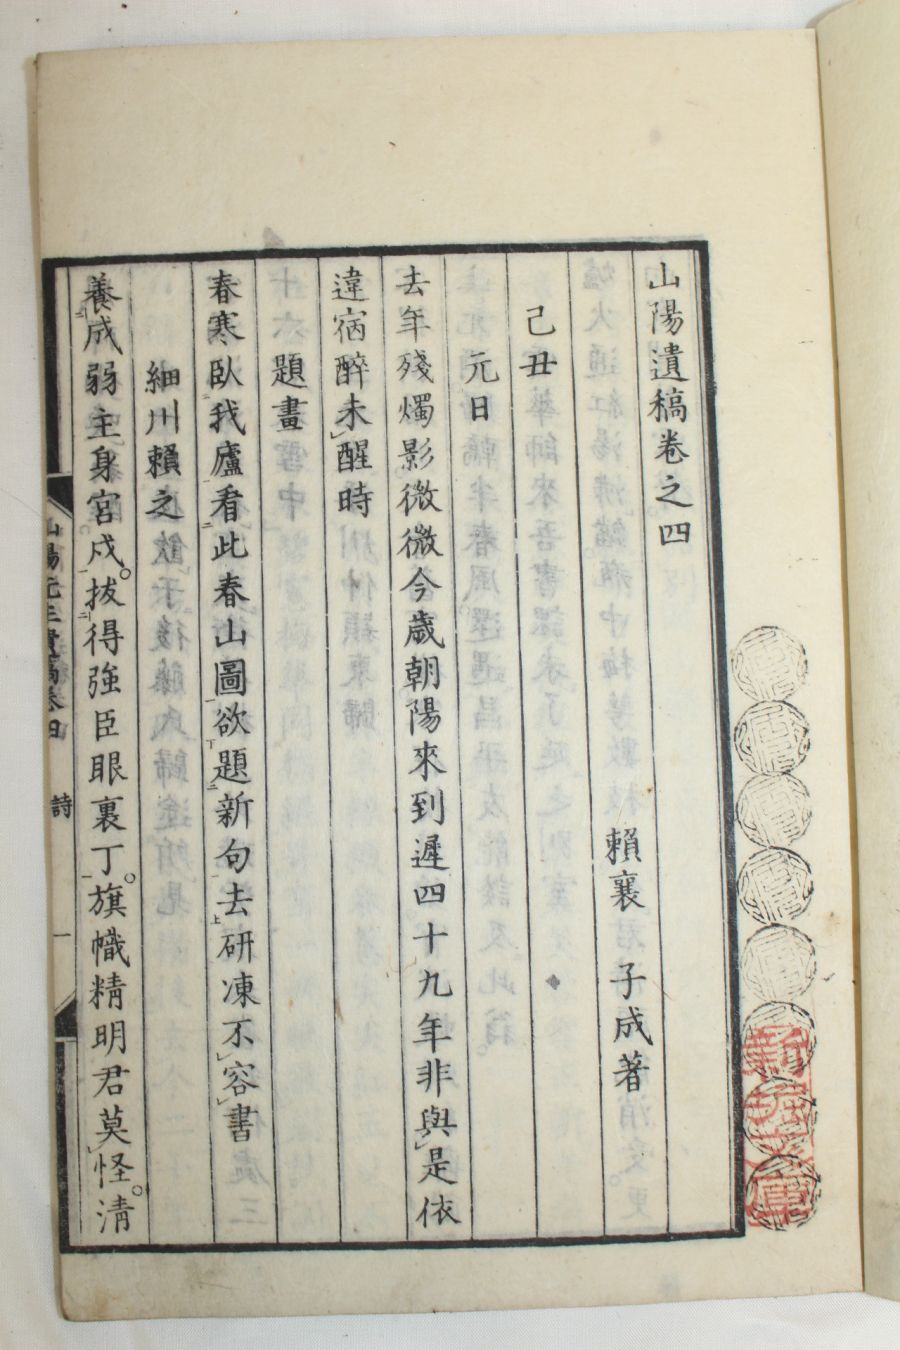 山陽遺稿卷之四
賴襄 子成著
己丑
元日
去年殘燭影微微今歲朝陽來到遲四十九年非與是依
違宿醉未醒時
題畫
春寒臥我廬看此春山圖欲題新句去研凍不容書
細川賴之
養成弱主身宮戍。拔得強臣眼裏丁。旗幟精明君莫怪。淸
山陽先生遺稿卷四
詩
一